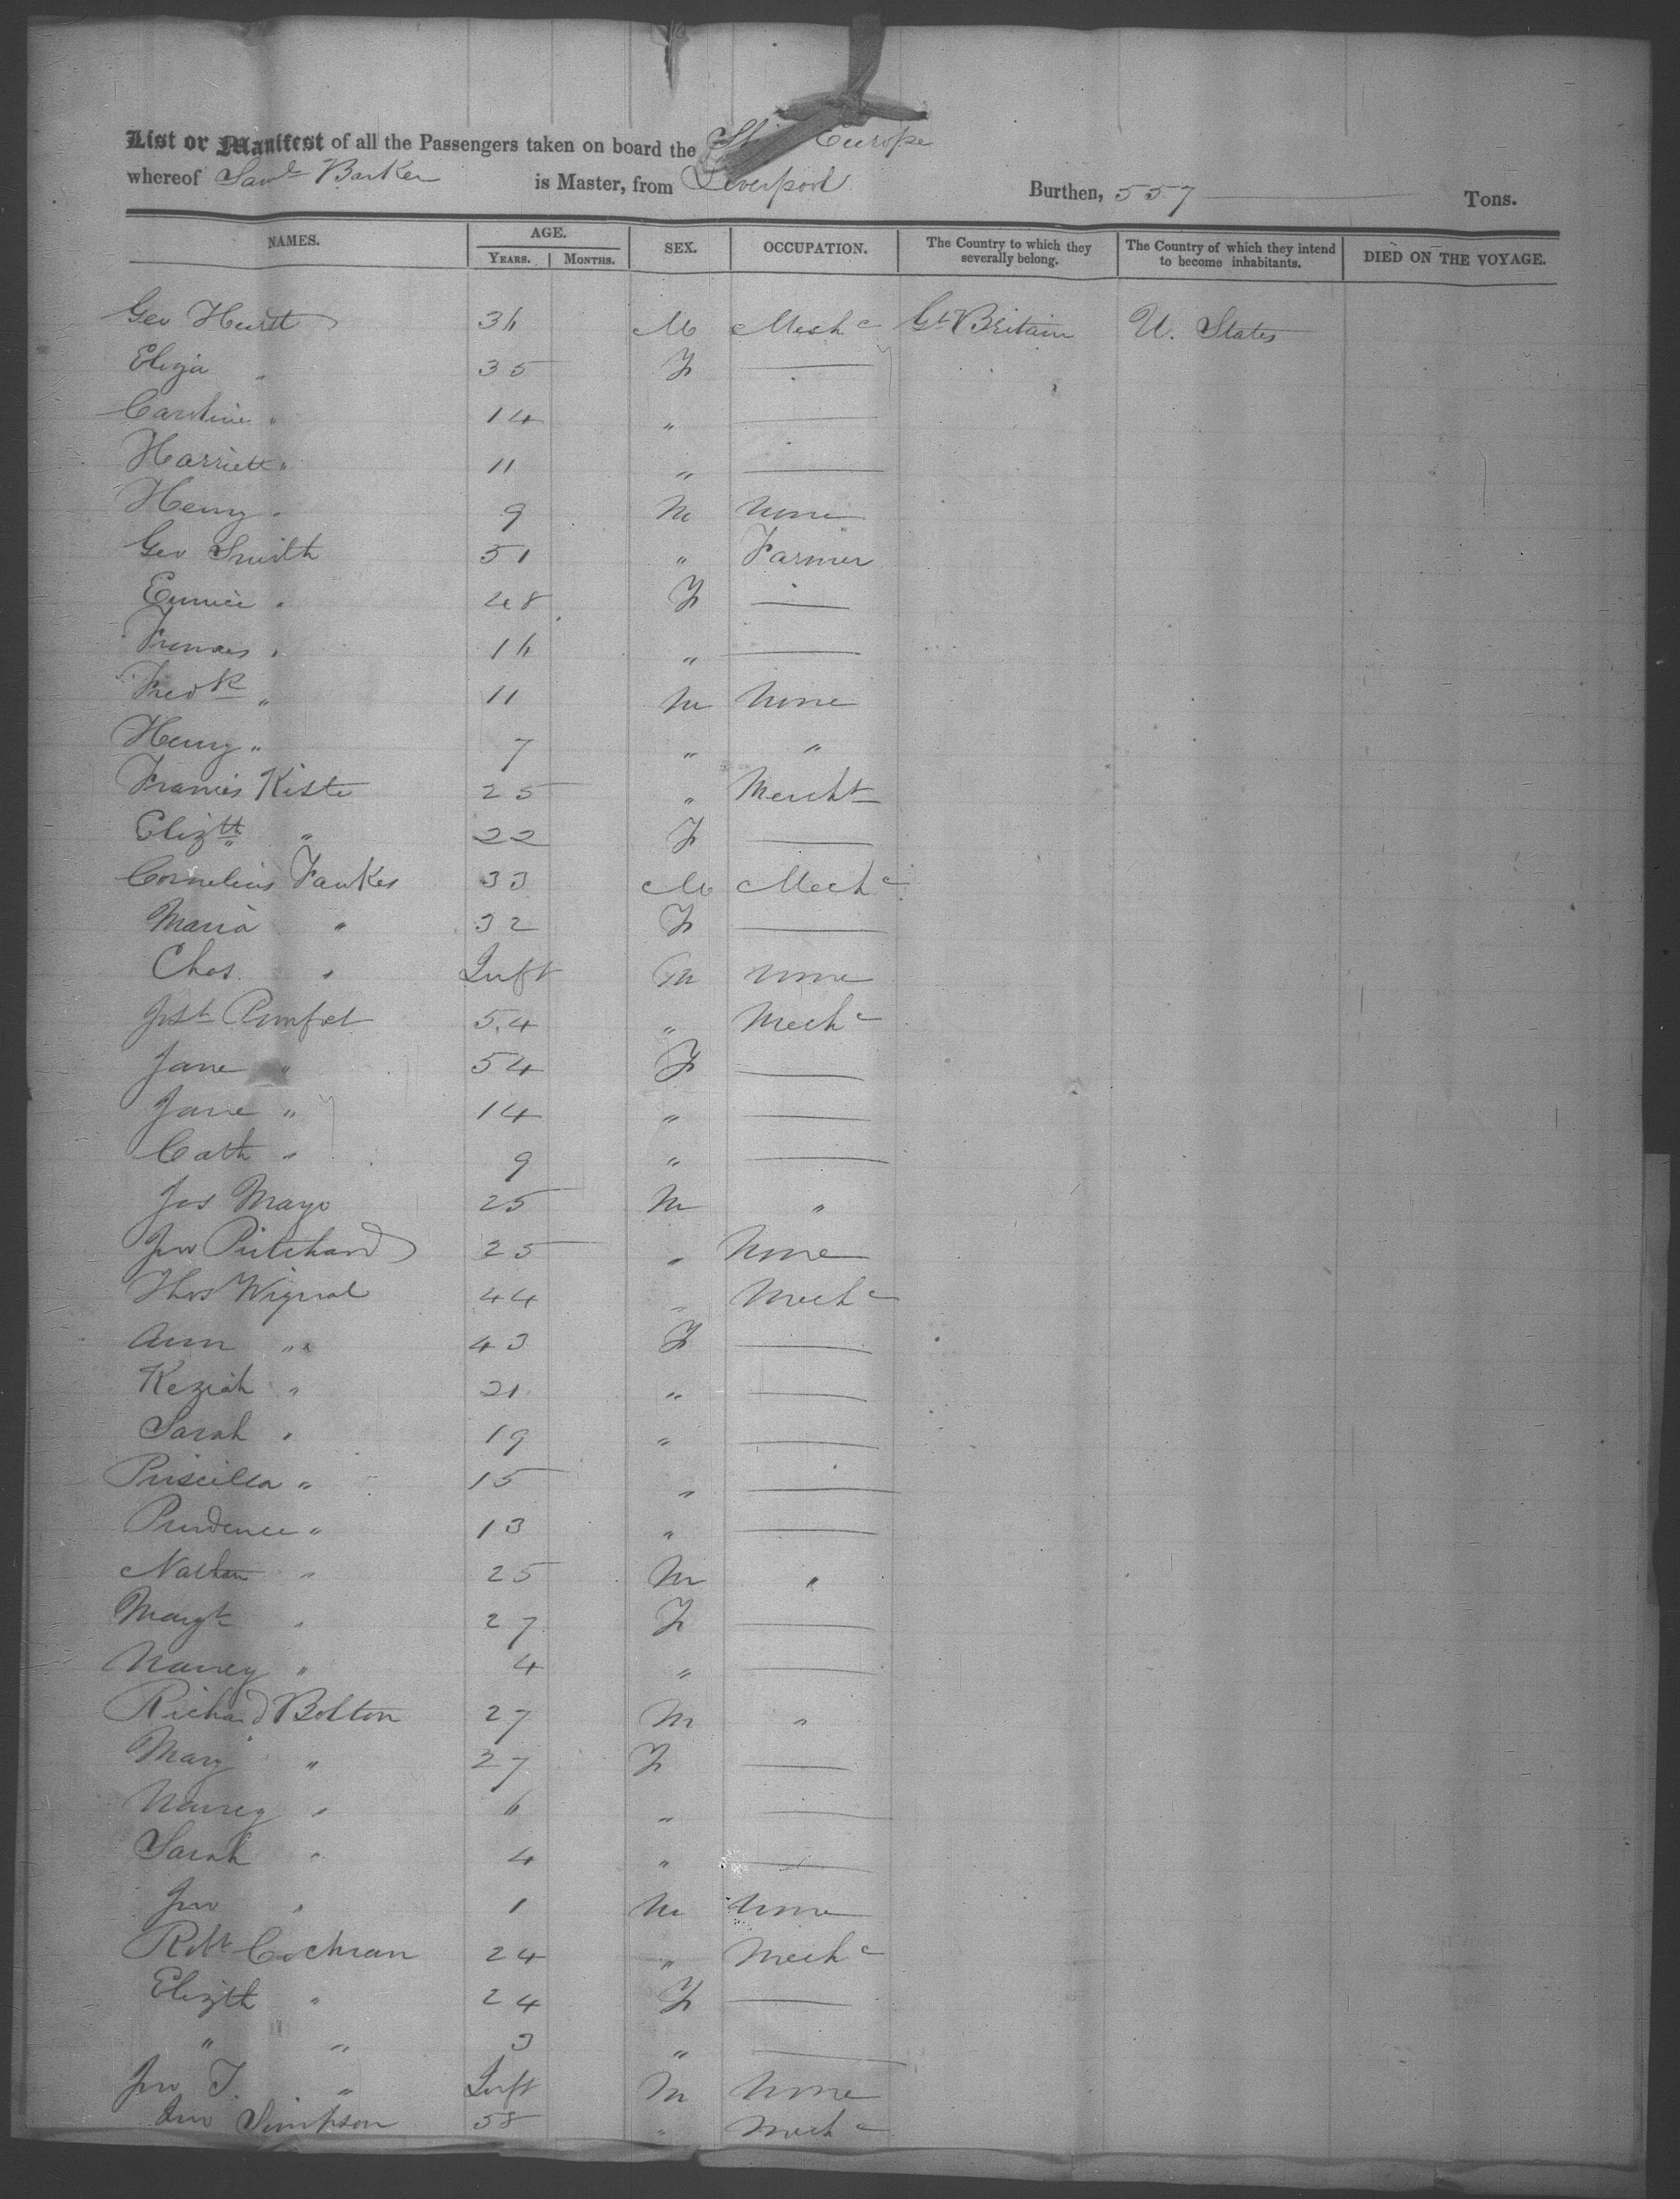 List or Manifest of all the Passengers taken on board the Europe
whereof Saml Barker is Master, from Liverpool Burthen, 557 Tons.
NAMES. AGE. YEARS. MONTHS. SEX. OCCUPATION. The Country to which they severally belong. The Country of which they intend to become inhabitants. DIED ON THE VOYAGE.
Geo Hurst 36 M Mechc Gt Britain U. States
Eliza " 35 F —
Caroline " 14 " —
Harriett " 11 " —
Henry " 9 M None
Geo Smith 51 " Farmer
Eunice " 48 F —
Frances " 16 " —
Fredk " 11 M None
Henry " 7 " "
Francis Kiste 25 " Mercht
Elizth " 22 F —
Cornelius Fawkes 33 M Mechc
Maria " 32 F —
Chas " Inft M None
Pumfret 54 " Mechc
Jane " 54 F —
Jane " 14 " —
Cath " 9 " —
Jas Mayo 25 M "
Jno Pritchard 25 " None
Thos Wignal 44 " Mechc
Ann " 43 F —
Keziah " 21 " —
Sarah " 19 " —
Priscilla " 15 " —
Prudence " 13 " —
Nathan " 25 M "
Margt " 27 F —
Nancy " 4 " —
Richard Bolton 27 M "
Mary " 27 F —
Nancy " 6 " —
Sarah " 4 " —
Jno " 1 M None
Robt Cochran 24 " Mechc
Elizth " 24 F —
" " 3 " —
Jno T. " Inft M None
Jno Simpson 58 " Mechc